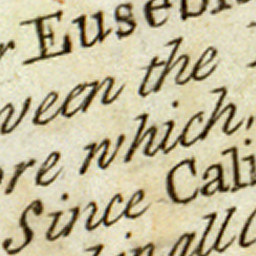 r Eusebi
ween the
ore which,
Since Cali
in all